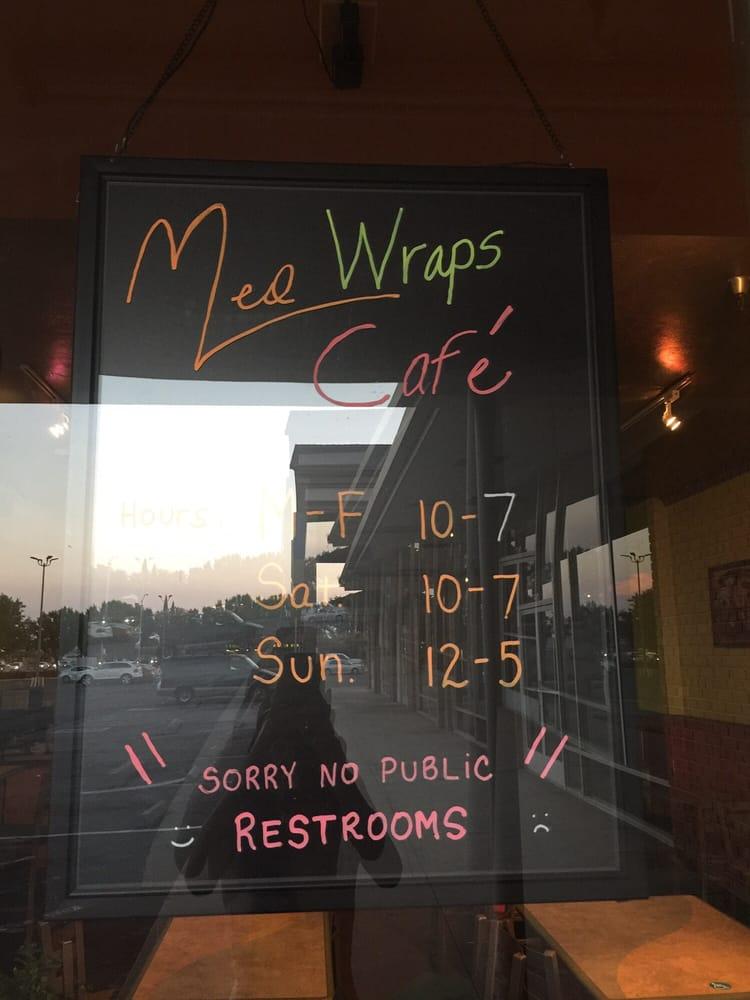 Med Wraps
Café
Hours: M-F 10-7
Sat 10-7
Sun. 12-5
" SORRY NO PUBLIC "
RESTROOMS